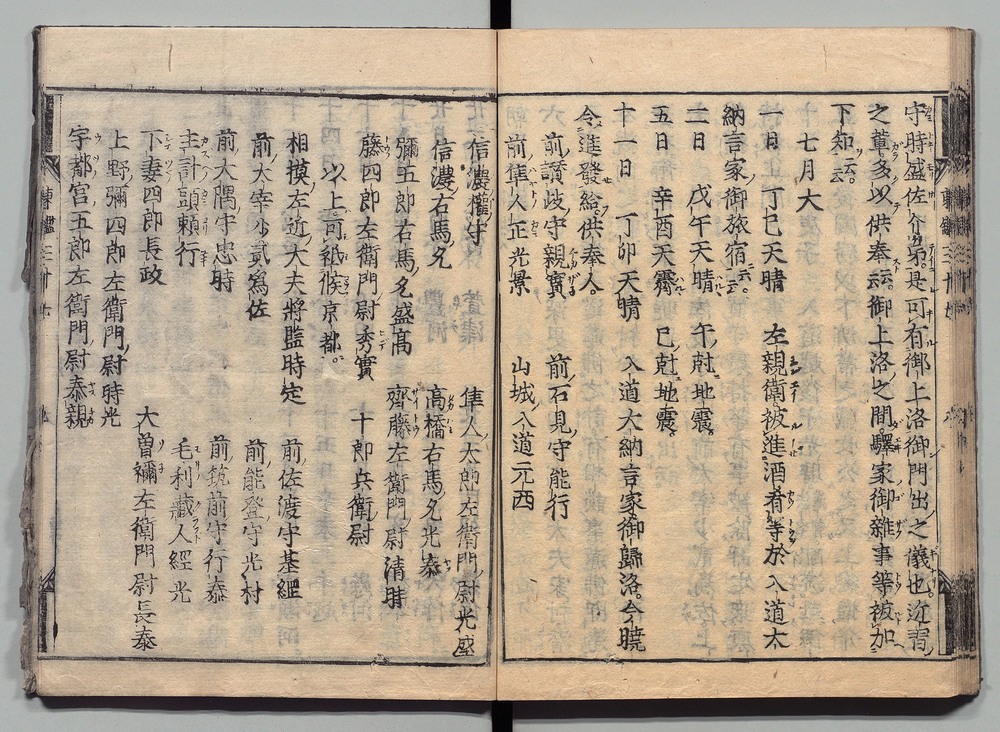 守時盛佐介。第是可有御上洛御門出之儀也。近習
之輩多以供奉云云。御上洛之間驛家御雜事等被加
下知云云。
七月大
一日 丁巳天晴 左親衛被進酒肴等於入道大
納言家御旅宿云云。
二日 戊午天晴 午尅地震。
五日 辛酉天霽 巳尅地震。
十一日 丁卯天晴 入道大納言家御歸洛。今曉
令進發給供奉人
前讃岐守親實 前石見守能行
前隼人正光景 山城入道元西
信濃權守 隼人太郎左衛門尉光盛
信濃右馬允 高橋右馬允光泰
彌五郎右馬允盛高 齊藤左衛門尉清時
藤四郎左衛門尉秀實 十郎兵衛尉
以上可祗候京都。
相摸左近大夫將監時定 前佐渡守基綱
前大宰少貳爲佐 前能登守光村
前大隅守忠時 前筑前守行泰
主計頭頼行 毛利藏人經光
下妻四郎長政 大曽禰左衛門尉長泰
上野彌四郎左衛門尉時光
宇都宮五郎左衛門尉泰親